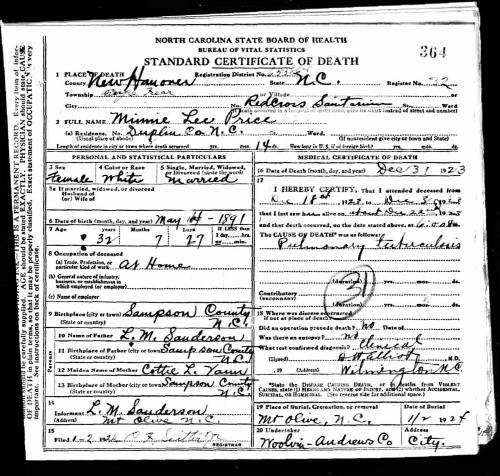 NORTH CAROLINA STATE BOARD OF HEALTH
BUREAU OF VITAL STATISTICS
STANDARD CERTIFICATE OF DEATH
364
1 PLACE OF DEATH
County New Hanover Registration District No. State N.C. Register No. 92
Township Cape Fear or Village
City No. Redcross Sanitarium St. Ward
2 FULL NAME Minnie Lee Price
(a) Residence. No. Duplin Co. N.C. St. Ward
(If nonresident give city or town and State)
Length of residence in city or town where death occurred yrs. mos. 14 ds. How long in U. S., if of foreign birth? yrs. mos. ds.
PERSONAL AND STATISTICAL PARTICULARS
3 Sex 4 Color or Race 5 Single, Married, Widowed, or Divorced (write the word)
Female White Married
5a If married, widowed, or divorced
Husband of
(or) Wife of
6 Date of birth (month, day, and year) May 4 - 1891
7 Age Years Months Days If LESS than 1 day, hrs. or min.
32 7 27
8 Occupation of deceased
(a) Trade, profession, or particular kind of work At Home
(b) General nature of industry, business, or establishment in which employed (or employer)
(c) Name of employer
9 Birthplace (city or town) Sampson County
(State or country) N.C.
Parents
10 Name of Father L. M. Sanderson
11 Birthplace of Father (city or town) Sampson County
(State or country) N.C.
12 Maiden Name of Mother Cottie L. Vann
13 Birthplace of Mother (city or town) Sampson County
(State or country) N.C.
14 Informant L. M. Sanderson
(Address) Mt Olive N.C.
15 Filed 1-2 192
REGISTRAR
MEDICAL CERTIFICATE OF DEATH
16 Date of Death (month, day, and year) Dec 31 1923
17 I HEREBY CERTIFY, That I attended deceased from
Dec 18th 1923 to Dec 1923
that I last saw her alive on 1923
and that death occurred, on the date stated above, at m.
The CAUSE OF DEATH* was as follows:
Pulmonary tuberculosis
31
(duration) yrs. mos. ds.
Contributory
(SECONDARY)
(duration) yrs. mos. ds.
18 Where was disease contracted
if not at place of death?
Did an operation precede death? No Date of
Was there an autopsy? No
What test confirmed diagnosis? Clinical
(Signed) M.D.
Wilmington NC
*State the Disease Causing Death, or in deaths from Violent Causes, state (1) Means and Nature of Injury, and (2) whether Accidental, Suicidal, or Homicidal. (See reverse side for additional space.)
19 Place of Burial, Cremation, or removal Date of Burial
Mt Olive, N.C. 1/2 1924
20 Undertaker Address
Woolvin-Andrews Co City.